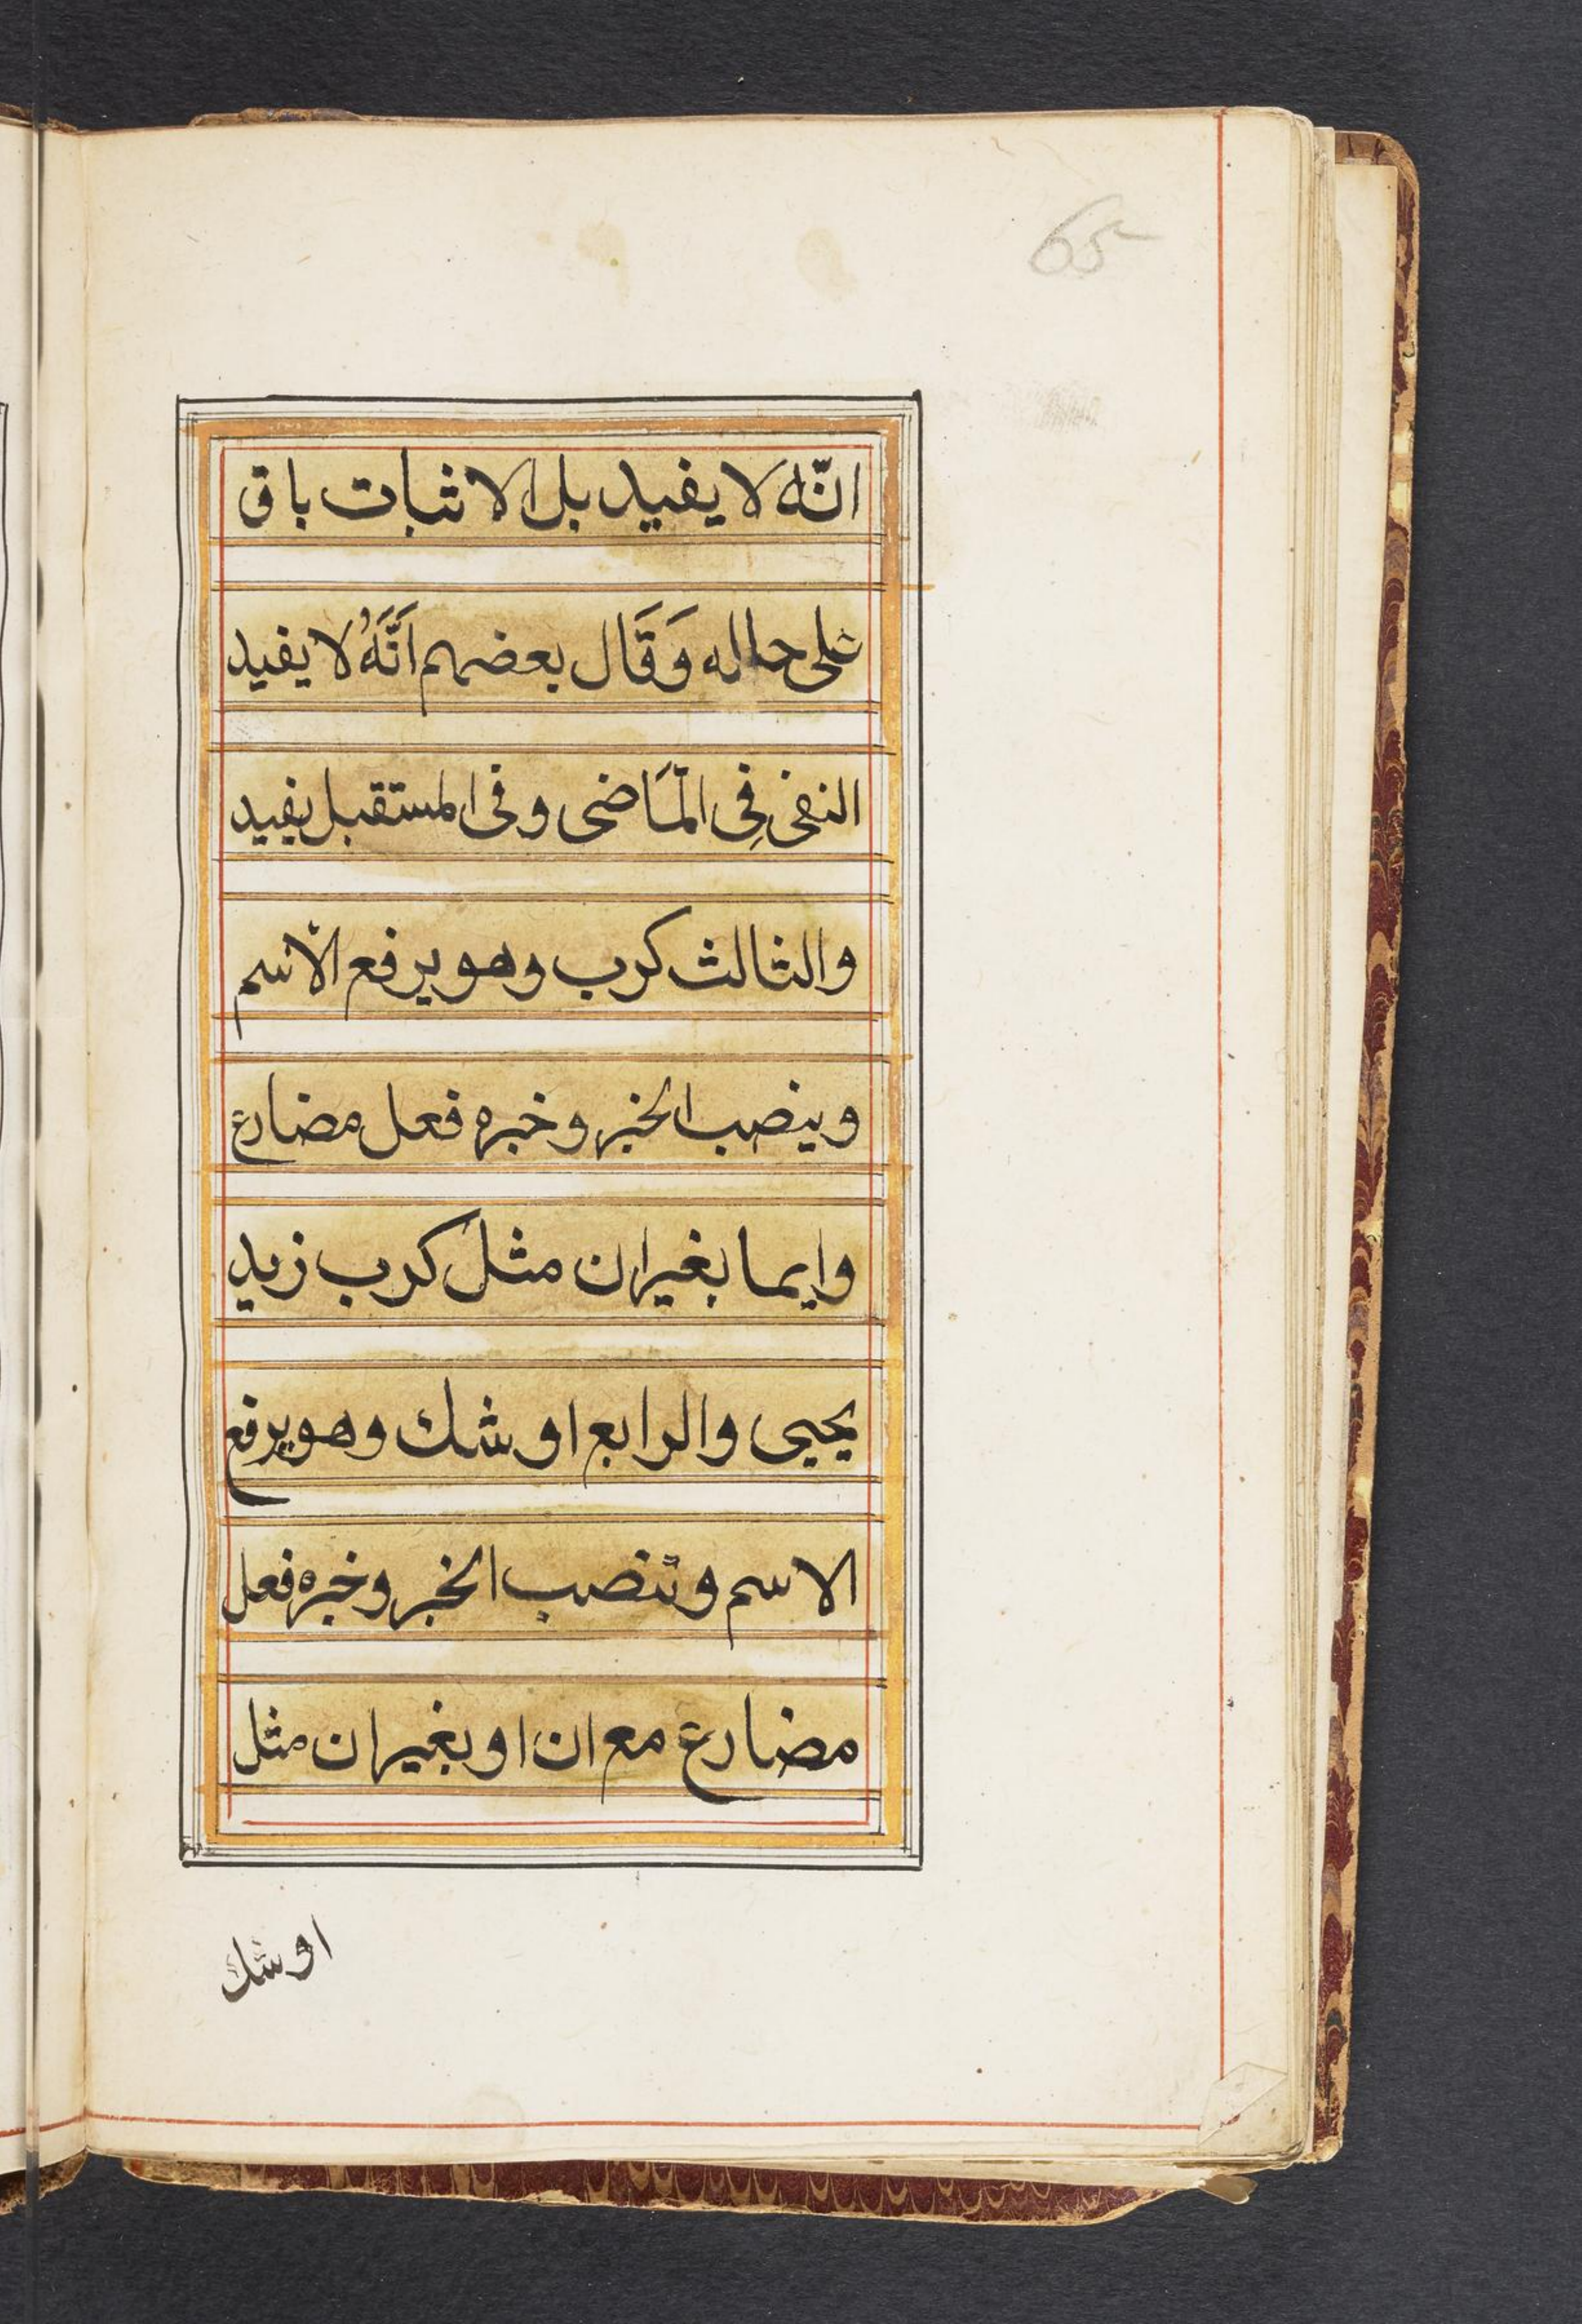 65
انّه لا يفيد بل الاثبات باق
على حاله وَقَال بعضهم اَنَّهُ لا يفيد
النفى فِى المَّاضى وفى المستقبل يفيد
والثالث كرب وهو يرفع الاسم
وينصب الخبر وخبره فعل مضارع
وايما بغير ان مثل كرب زيد
يحيى والرابع اوشك وهو يرفع
الاسم وتنصب الخبر وخبره فعل
مضارع مع ان او بغير ان مثل
اوشك